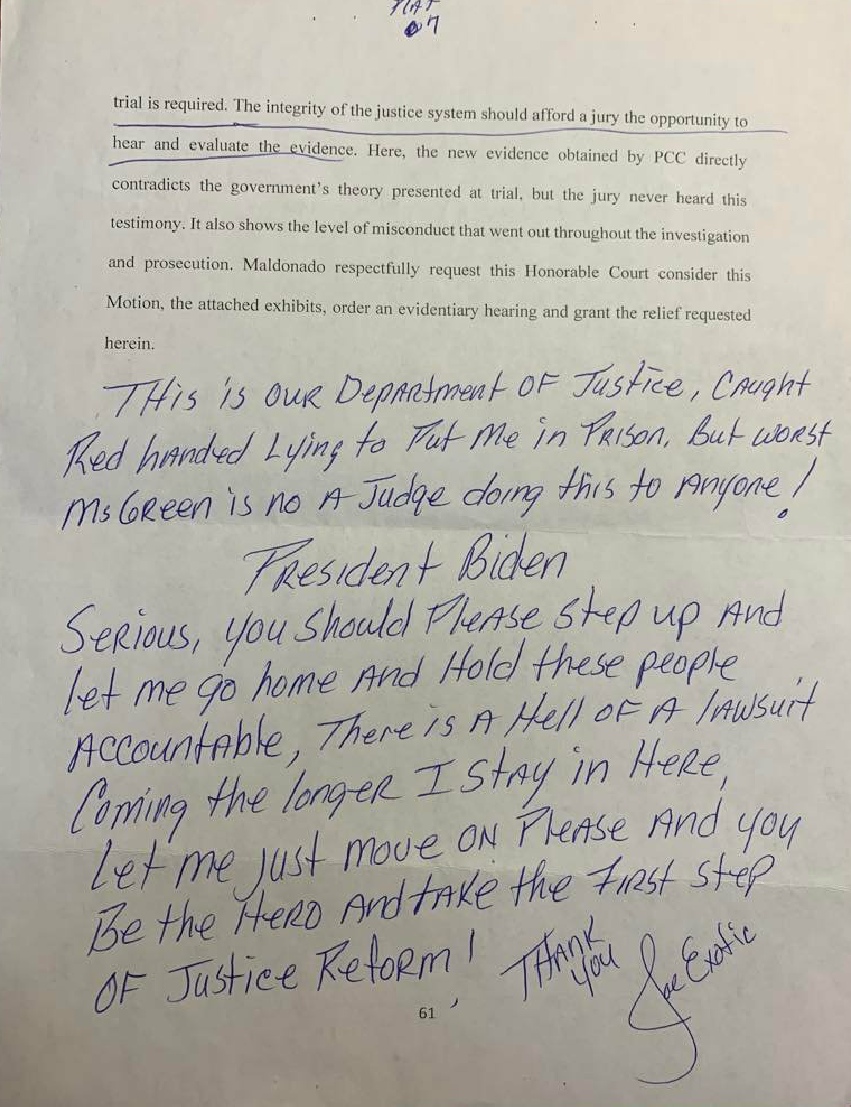 trial is required. The integrity of the justice system should afford a jury the opportunity to
hear and evaluate the evidence. Here, the new evidence obtained by PCC directly
contradicts the government's theory presented at trial, but the jury never heard this
testimony. It also shows the level of misconduct that went out throughout the investigation
and prosecution. Maldonado respectfully request this Honorable Court consider this
Motion, the attached exhibits, order an evidentiary hearing and grant the relief requested
herein.
THis is our DepARtment OF Justice, CAught
Red hANded Lying to Put Me in PRison, But woRst
Ms GReen is no A Judge doing this to ANyone!
PResident Biden
SeRious, you should PleAse step up ANd
let me go home ANd Hold these people
ACCountAble, There is A Hell OF A lAwsuit
Coming the longeR I StAy in HeRe,
Let me just move ON PleAse ANd you
Be the HeRO ANd tAKe the FiRst step
OF Justice ReFoRm!
THANK
you
Joe Exotic
61